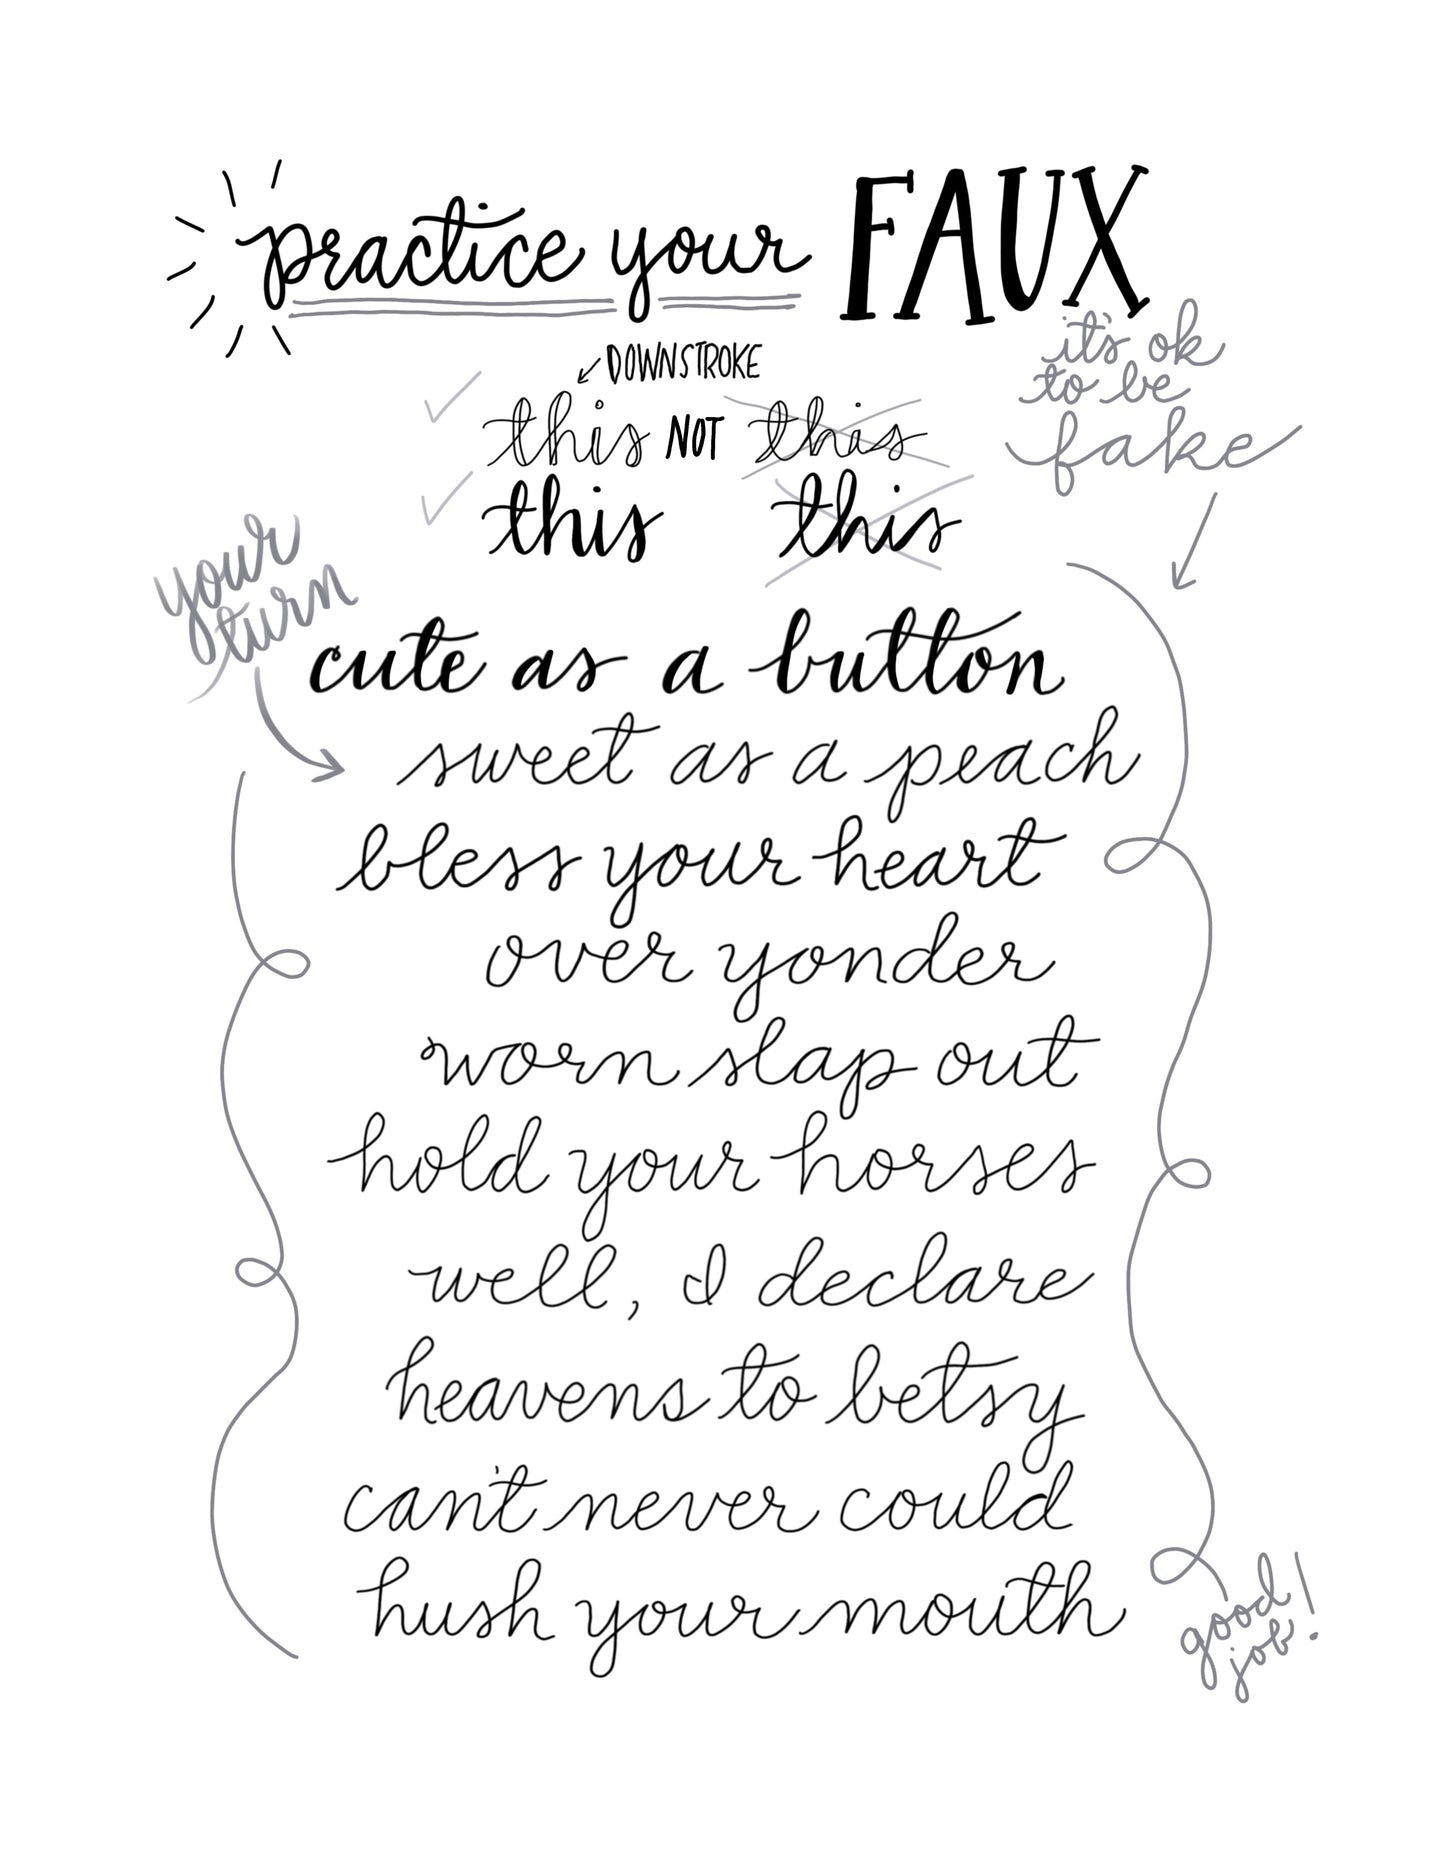 practice your FAUX
it's ok
to be
fake
DOWNSTROKE
this NOT this
this this
your
turn
cute as a button
sweet as a peach
bless your heart
over yonder
worn slap out
hold your horses
well, I declare
heavens to betsy
can't never could
hush your mouth
good
job!